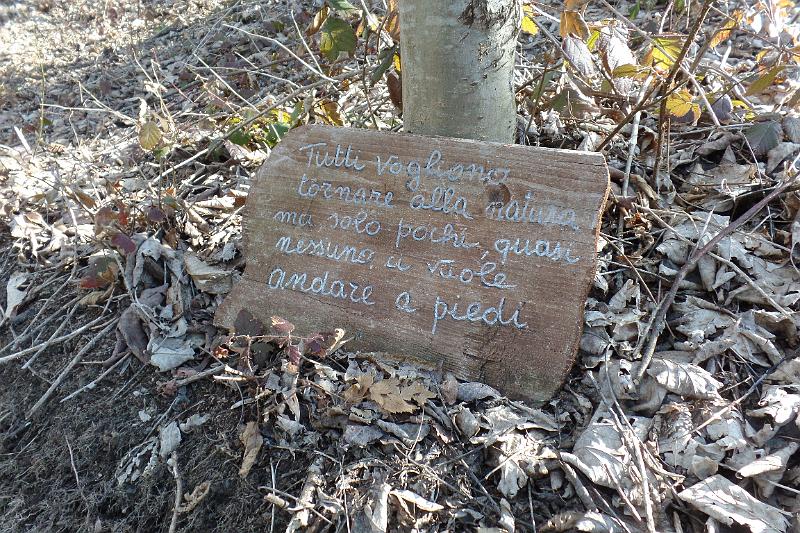 Tutti vogliono
tornare alla natura
ma solo pochi, quasi
nessuno ci vuole
andare a piedi